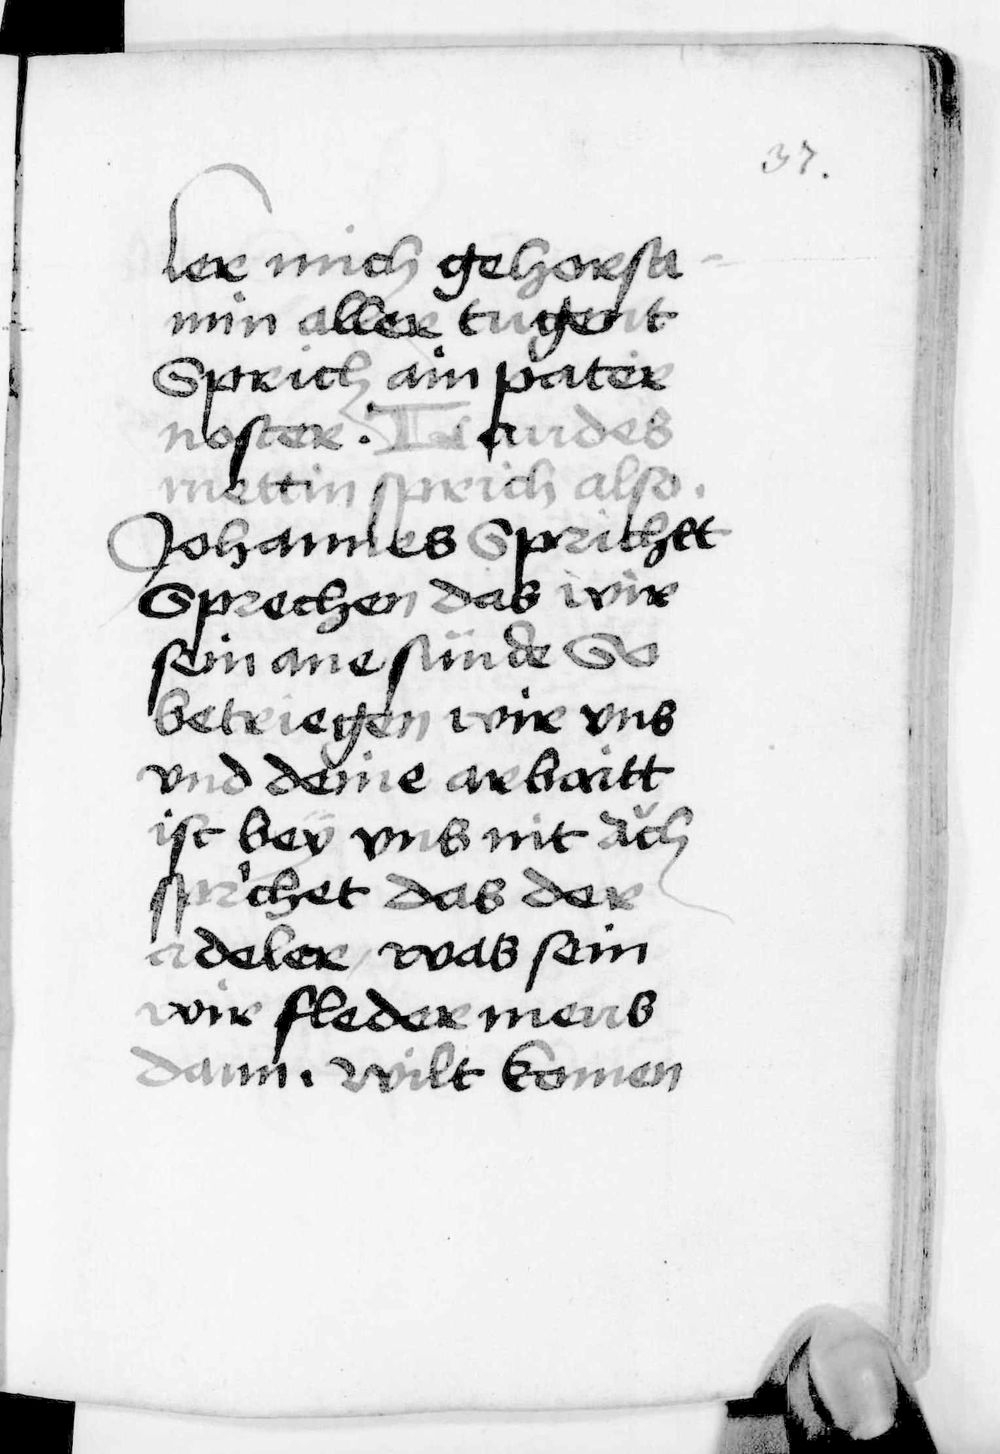 37.
ler mich gehorsa-
min aller tugent
Sprich ain pater
noster. Zu laudes
mettin sprich also.
Johannes Sprichtt
Sprechen das wir
sein ane sünde So
betriegen wir vns
vnd deine arbaitt
ist bey vns nit ăch
sprichet das der
adeler / was sein
wir fledermeus
dann. wilt komen